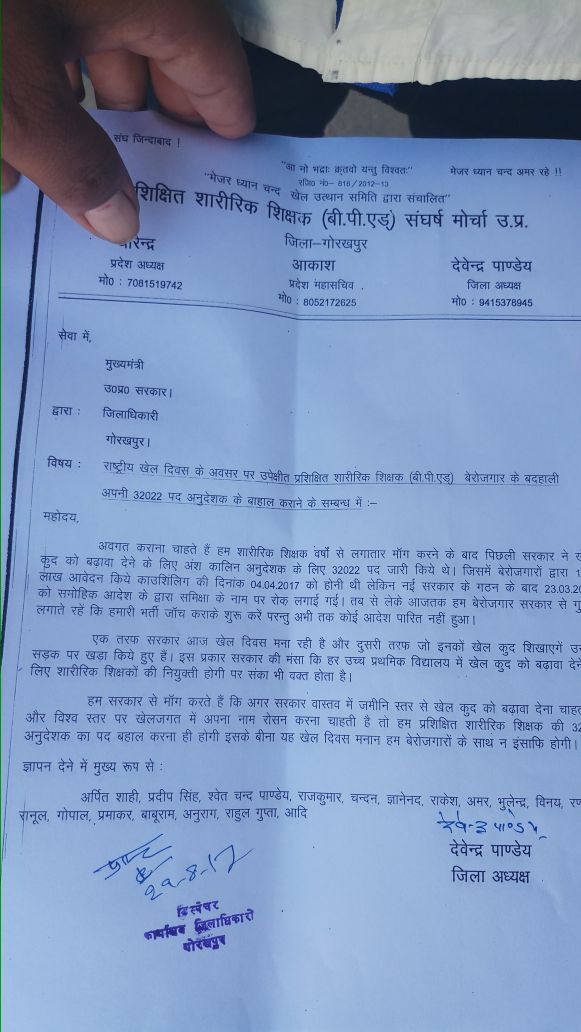 संघ जिन्दाबाद !
"आ नो भद्राः क्रतवो यन्तु विश्वतः"
मेजर ध्यान चन्द अमर रहे !!
रजि0 नं0- 818/2012-13
"मेजर ध्यान चन्द खेल उत्थान समिति द्वारा संचालित"
शिक्षित शारीरिक शिक्षक (बी.पी.एड्) संघर्ष मोर्चा उ.प्र.
जिला-गोरखपुर
प्रदेश अध्यक्ष
मो0 : 7081519742
आकाश
प्रदेश महासचिव .
मो0 : 8052172625
देवेन्द्र पाण्डेय
जिला अध्यक्ष
मो0 : 9415378945
सेवा में,
मुख्यमंत्री
उ0प्र0 सरकार।
द्वारा : जिलाधिकारी
गोरखपुर।
विषय : राष्ट्रीय खेल दिवस के अवसर पर उपेक्षीत प्रशिक्षित शारीरिक शिक्षक (बी.पी.एड्) बेरोजगार के बदहाली
अपनी 32022 पद अनुदेशक के बाहाल कराने के सम्बन्ध में :–
महोदय,
अवगत कराना चाहते हैं हम शारीरिक शिक्षक वर्षो से लगातार माँग करने के बाद पिछली सरकार ने
कुद को बढ़ावा देने के लिए अंश कालिन अनुदेशक के लिए 32022 पद जारी किये थे। जिसमें बेरोजगारों द्वारा
लाख आवेदन किये काउशिलिंग की दिनांक 04.04.2017 को होनी थी लेकिन नई सरकार के गठन के बाद 23.03.20
को समोहिक आदेश के द्वारा समिक्षा के नाम पर रोक लगाई गई। तब से लेके आजतक हम बेरोजगार सरकार से
लगाते रहें कि हमारी भर्ती जाँच कराके शुरू करें परन्तु अभी तक कोई आदेश पारित नहीं हुआ।
एक तरफ सरकार आज खेल दिवस मना रही है और दुसरी तरफ जो इनकों खेल कुद शिखाएगें
सड़क पर खड़ा किये हुए हैं। इस प्रकार सरकार की मंसा कि हर उच्च प्रथमिक विद्यालय में खेल कुद को बढ़ावा देने
लिए शारीरिक शिक्षकों की नियुक्ती होगी पर संका भी वक्त होता है।
हम सरकार से माँग करते हैं कि अगर सरकार वास्तव में जमीनि स्तर से खेल कुद को बढ़ावा देना चाह
और विश्व स्तर पर खेलजगत में अपना नाम रोसन करना चाहती है तो हम प्रशिक्षित शारीरिक शिक्षक की 32
अनुदेशक का पद बहाल करना ही होगी इसके बीना यह खेल दिवस मनान हम बेरोजगारों के साथ न इंसाफि होगी।
ज्ञापन देने में मुख्य रूप से :
अर्पित शाही, प्रदीप सिंह, श्वेत चन्द पाण्डेय, राजकुमार, चन्दन, ज्ञानेनद, राकेश, अमर, भुलेन्द्र, विनय,
रानूल, गोपाल, प्रमाकर, बाबूराम, अनुराग, राहुल गुप्ता, आदि
देवेन्द्र पाण्डेय
जिला अध्यक्ष
29-8-17
डिस्पैचर
कार्यालय जिलाधिकारी
गोरखपुर